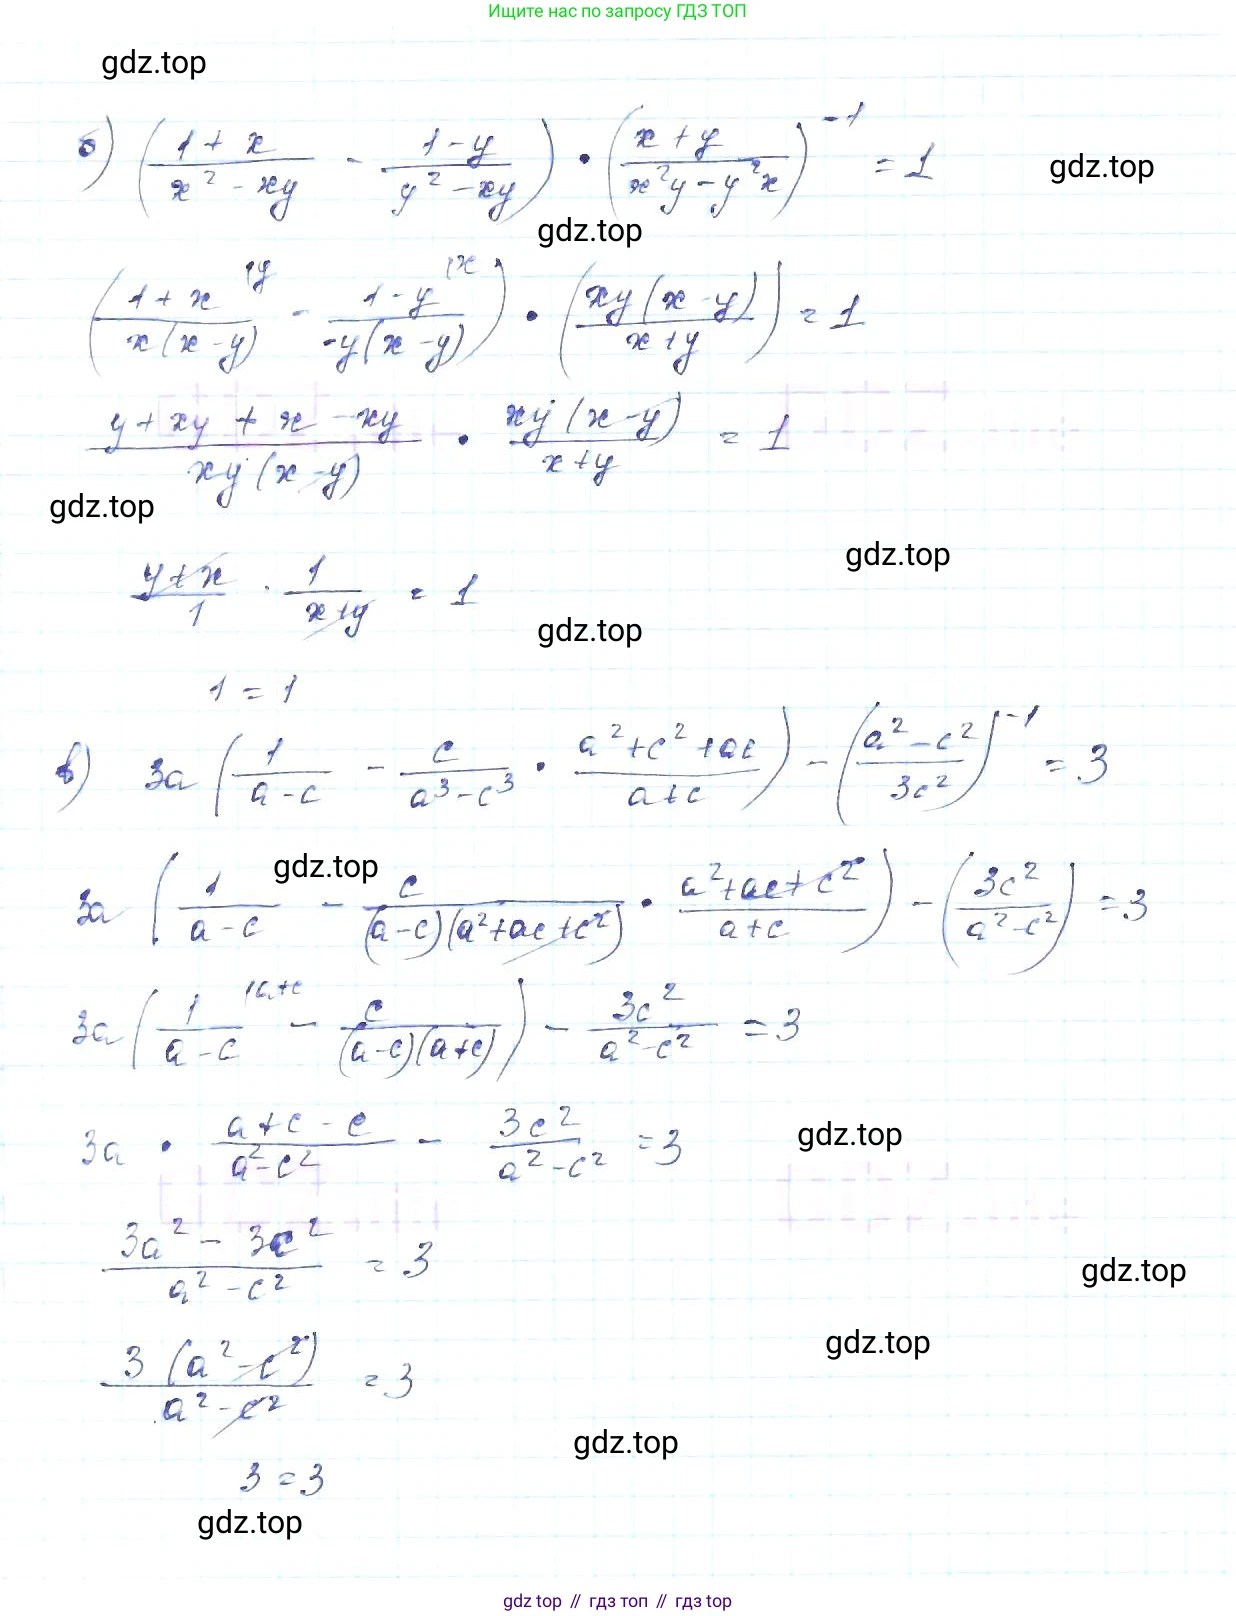 Ищите нас по запросу ГДЗ ТОП
gdz.top
б) ((1+x)/(x²-xy) - (1-y)/(y²-xy)) · ((x+y)/(x²y-y²x))⁻¹ = 1
gdz.top
gdz.top
((1+x)/(x(x-y)) |y - (1-y)/(-y(x-y)) |x) · ((xy(x-y))/(x+y)) = 1
(y+xy+x-xy)/(xy(x-y)) · (xy(x-y))/(x+y) = 1
gdz.top
gdz.top
(y+x)/1 · 1/(x+y) = 1
gdz.top
1 = 1
в) 3a(1/(a-c) - c/(a³-c³) · (a²+c²+ac)/(a+c)) - ((a²-c²)/(3c²))⁻¹ = 3
gdz.top
3a(1/(a-c) - c/((a-c)(a²+ac+c²)) · (a²+ac+c²)/(a+c)) - (3c²/(a²-c²)) = 3
3a(1/(a-c) |a+c - c/((a-c)(a+c))) - 3c²/(a²-c²) = 3
3a · (a+c-c)/(a²-c²) - 3c²/(a²-c²) = 3
gdz.top
(3a²-3c²)/(a²-c²) = 3
gdz.top
gdz.top
3(a²-c²)/(a²-c²) = 3
gdz.top
3 = 3
gdz.top
gdz top // гдз топ // gdz top